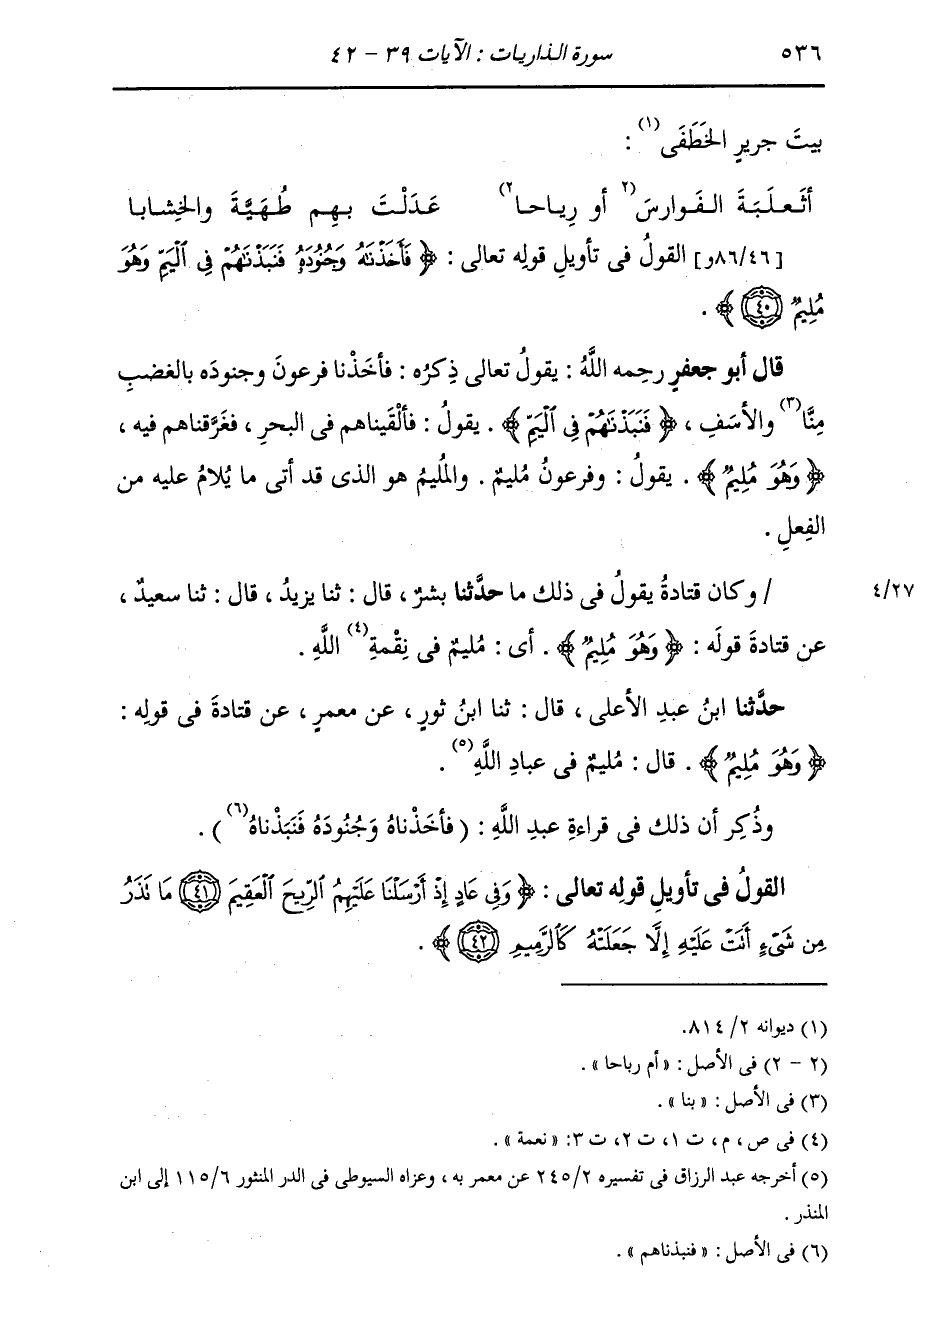 ٥٣٦ سورة الذاريات : الآيات ٣٩ - ٤٢
بيتَ جريرٍ الخَطَفَى(١) :
أثَعلَبَةَ الفَوارسَ(٢) أو رِياحا(٢) عَدَلْتَ بهِم طُهَيَّةَ والخِشابا
[٨٦/٤٦و] القولُ فى تأويلِ قولِه تعالى : ﴿ فَأَخَذْنَٰهُ وَجُنُودَهُۥ فَنَبَذْنَٰهُمْ فِى ٱلْيَمِّ وَهُوَ
مُلِيمٌ ٤٠ ﴾ .
قال أبو جعفرٍ رحِمه اللَّهُ : يقولُ تعالى ذِكرُه : فأخَذْنا فرعونَ وجنودَه بالغضبِ
مِنَّا(٣) والأسَفِ ، ﴿ فَنَبَذْنَٰهُمْ فِى ٱلْيَمِّ ﴾ . يقولُ : فألْقَيناهم فى البحرِ ، فغَرَّقناهم فيه ،
﴿ وَهُوَ مُلِيمٌ ﴾ . يقولُ : وفرعونُ مُليمٌ . والمُليمُ هو الذى قد أتى ما يُلامُ عليه من
الفِعلِ .
/ وكان قتادةُ يقولُ فى ذلك ما حدَّثنا بشرٌ ، قال : ثنا يزيدُ ، قال : ثنا سعيدٌ ، ٤/٢٧
عن قتادةَ قولَه : ﴿ وَهُوَ مُلِيمٌ ﴾ . أى : مُليمٌ فى نِقْمةِ(٤) اللَّهِ .
حدَّثنا ابنُ عبدِ الأعلى ، قال : ثنا ابنُ ثورٍ ، عن معمرٍ ، عن قتادةَ فى قولِه :
﴿ وَهُوَ مُلِيمٌ ﴾ . قال : مُليمٌ فى عبادِ اللَّهِ(٥) .
وذُكِر أن ذلك فى قراءةِ عبدِ اللَّهِ : ( فأخَذْناهُ وَجُنُودَهُ فَنَبَذْناهُ(٦) ) .
القولُ فى تأويلِ قولِه تعالى : ﴿ وَفِى عَادٍ إِذْ أَرْسَلْنَا عَلَيْهِمُ ٱلرِّيحَ ٱلْعَقِيمَ ٤١ مَا تَذَرُ
مِن شَىْءٍ أَتَتْ عَلَيْهِ إِلَّا جَعَلَتْهُ كَٱلرَّمِيمِ ٤٢ ﴾ .
(١) ديوانه ٢/ ٨١٤.
(٢ - ٢) فى الأصل : « أم رباحا » .
(٣) فى الأصل : « بنا » .
(٤) فى ص ، م ، ت ١، ت ٢، ت ٣: « نعمة » .
(٥) أخرجه عبد الرزاق فى تفسيره ٢/ ٢٤٥ عن معمر به ، وعزاه السيوطى فى الدر المنثور ٦/ ١١٥ إلى ابن
المنذر .
(٦) فى الأصل : « فنبذناهم » .